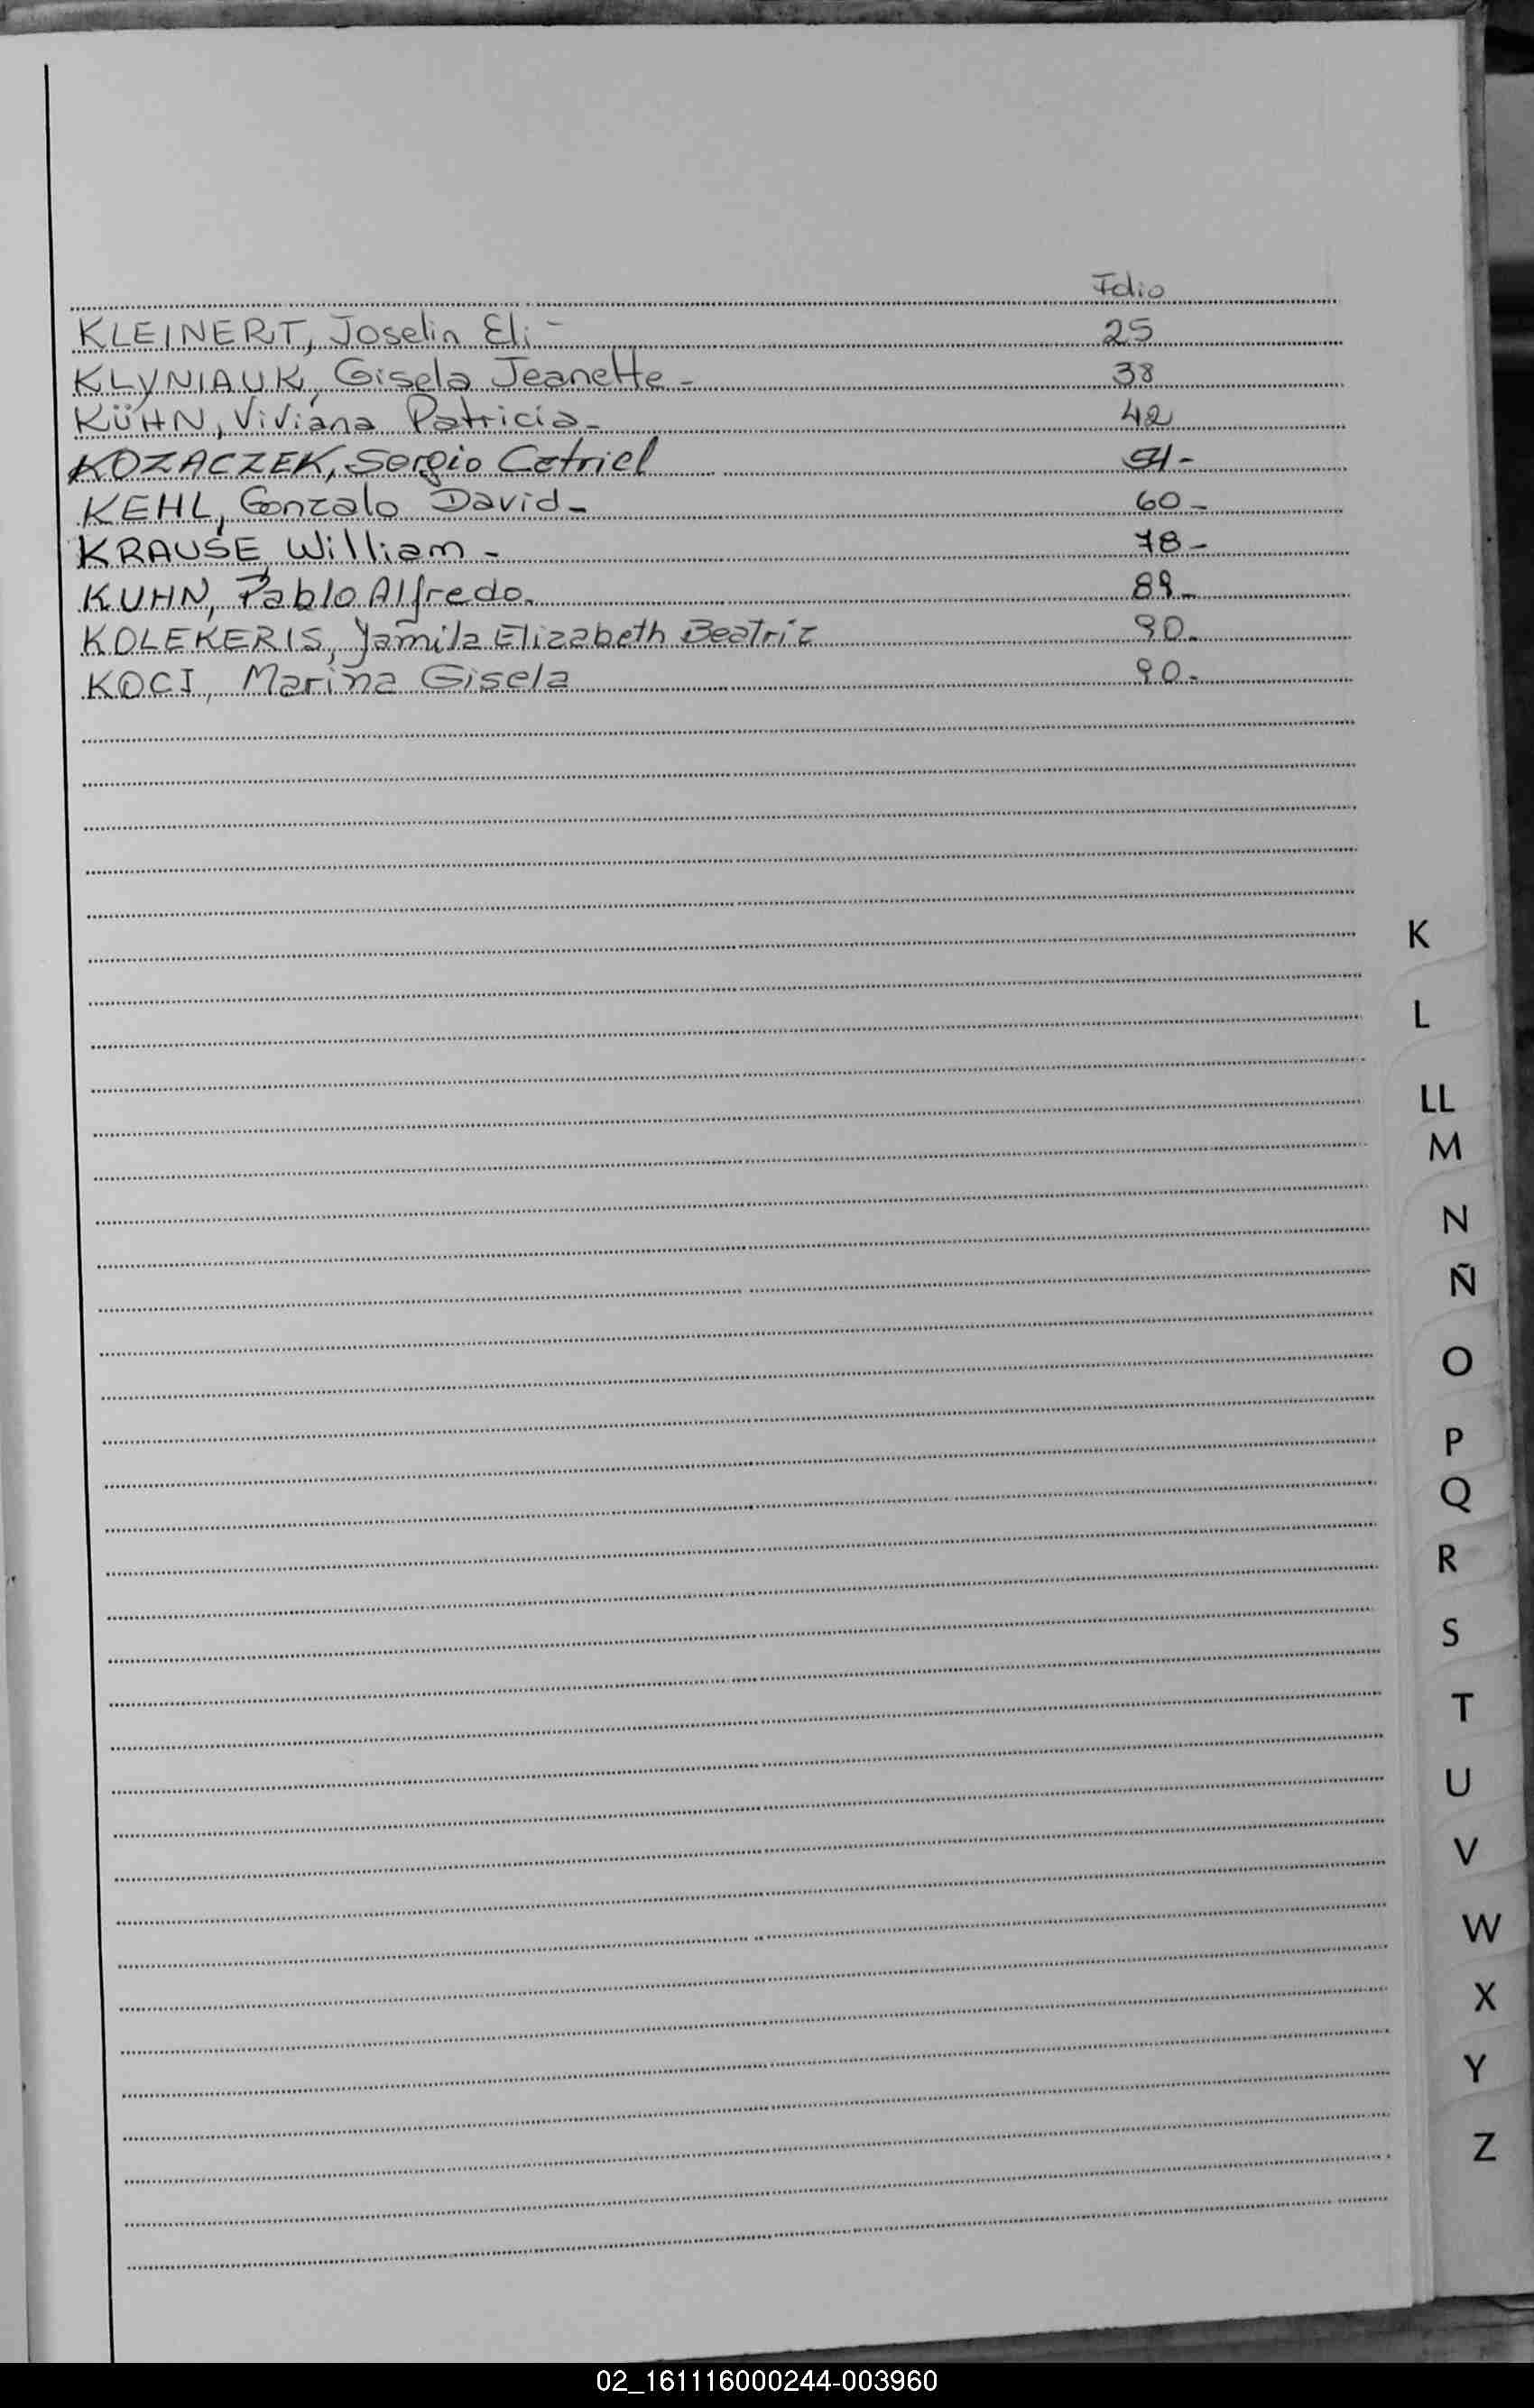 Folio
KLEINERT, Joselin Eli - 25
KLYNIAUK, Gisela Jeanette - 38
KÜHN, Viviana Patricia - 42
KOZACZEK, Sergio Catriel 54 -
KEHL, Gonzalo David - 60 -
KRAUSE, William - 78 -
KUHN, Pablo Alfredo. 89 -
KOLEKERIS, Yamila Elizabeth Beatriz 90 -
KOCI, Marina Gisela 90 -
K
L
LL
M
N
Ñ
O
P
Q
R
S
T
U
V
W
X
Y
Z
02_161116000244-003960